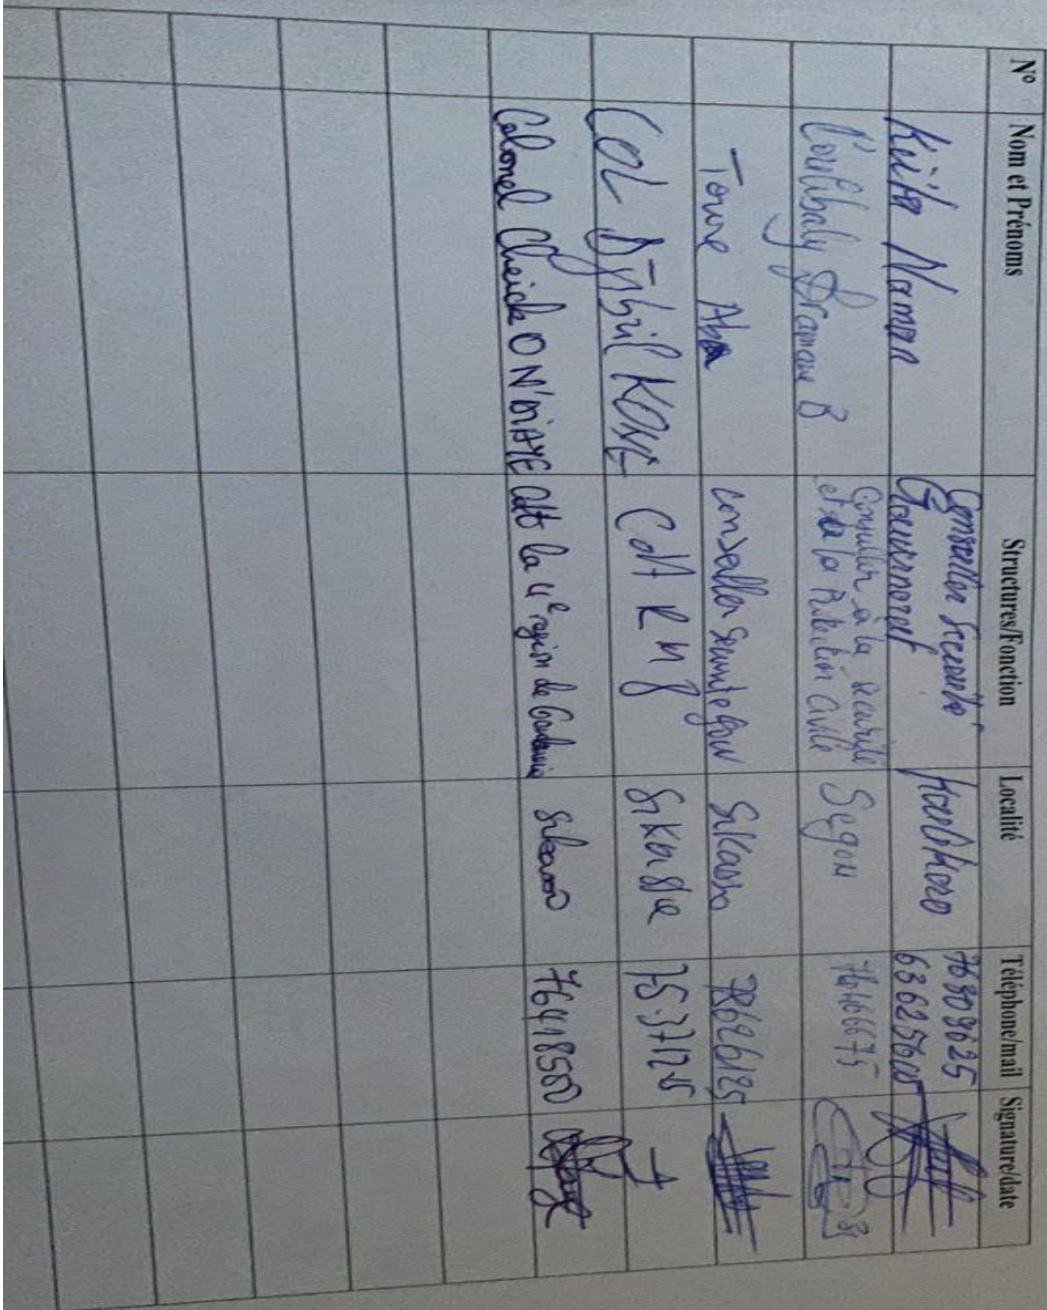 N° Nom et Prénoms Structures/Fonction Localité Téléphone/mail Signature/date
Keita Naman Conseiller Securité Koulikoro 76309625
Gouvernorat 63625600
Coulibaly Dramane B Conseiller à la securité Segou 76466675
et à la Protection Civile
Toure Aba conseiller securite gouv Sikasso 78626125
COL Djibril KONE Cdt RM Sikasso
Colonel Cheick O N'DIAYE Cdt la 4e region de Gendarmerie Sikasso 76418500